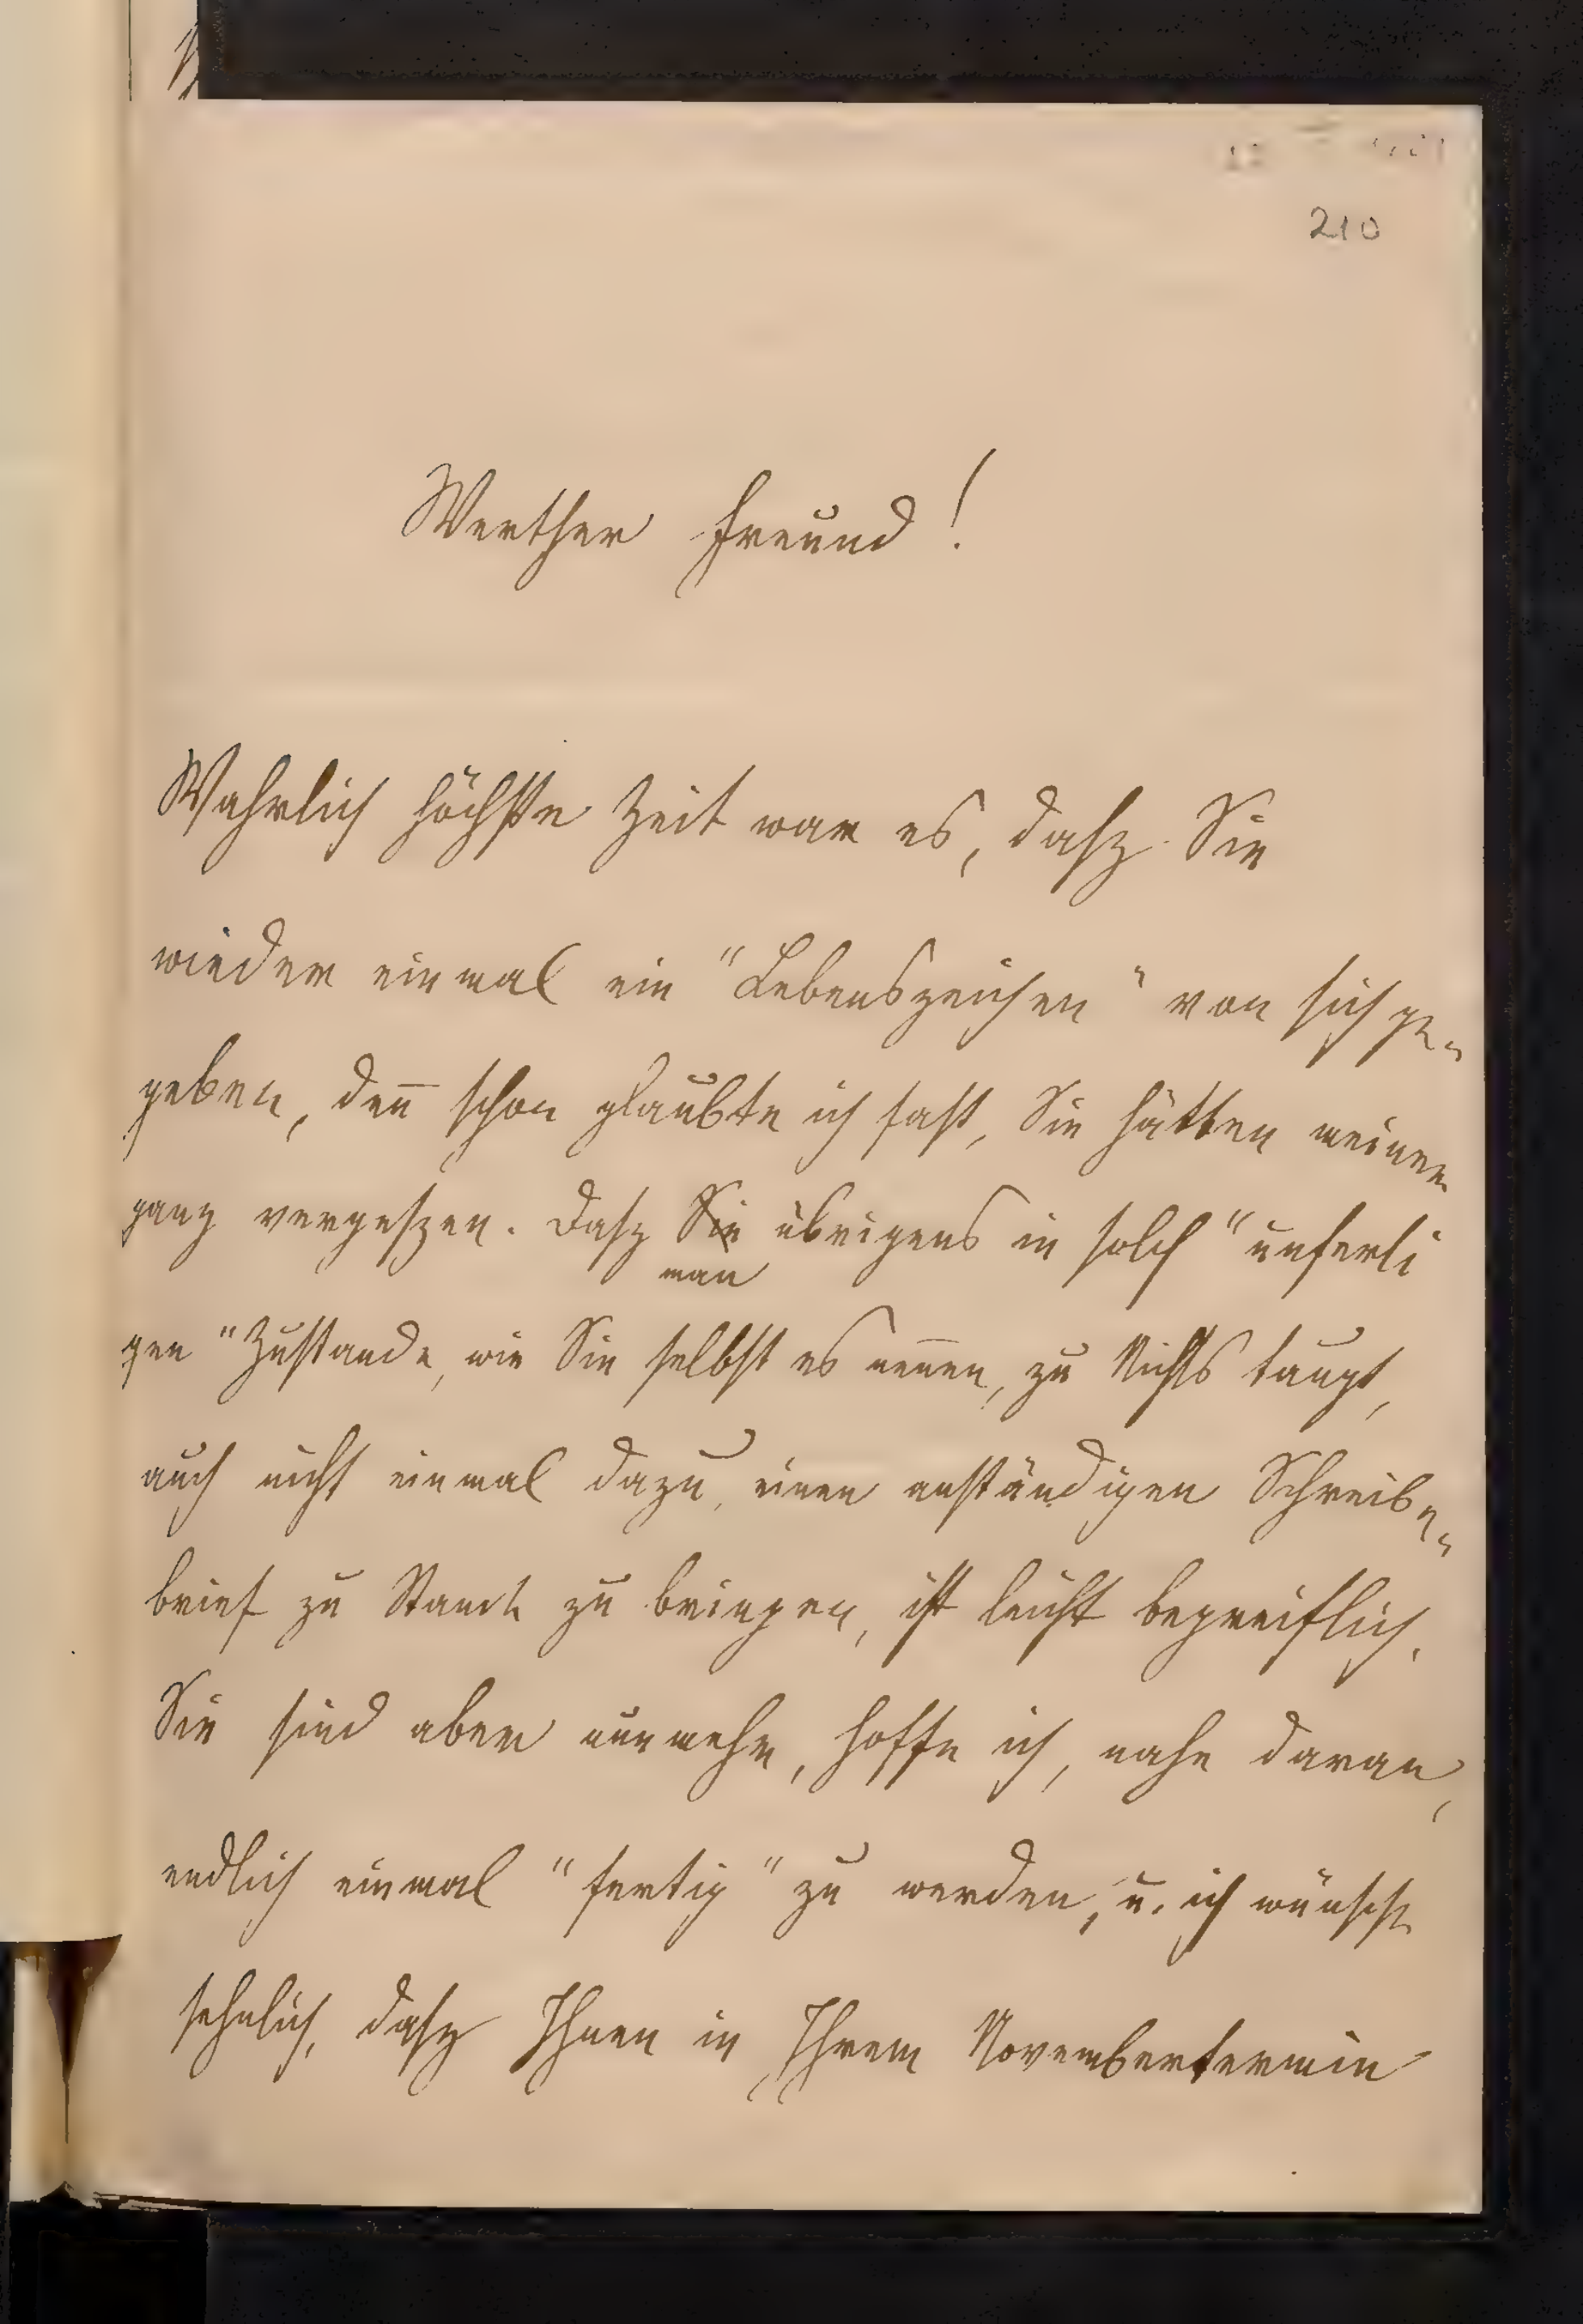 210
Werther Freund!
Wahrlich höchste Zeit war es, dasz Sie
wieder einmal ein "Lebenszeichen" von sich ge-
geben, deñ schon glaubte ich fast, Sie hätten meiner
ganz vergeszen. Dasz Sie übrigens in solch "unferti
man
gen" Zustande, wie Sie selbst es neñen, zu Nichts taugt,
auch nicht einmal dazu, einen anständigen Schreibe-
brief zu Stande zu bringen, ist leicht begreiflich.
Sie sind aber nunmehr, hoffe ich, nahe daran,
endlich einmal "fertig" zu werden, u. ich wünsche
sehnlich, dasz Ihnen in Ihrem Novembertermin